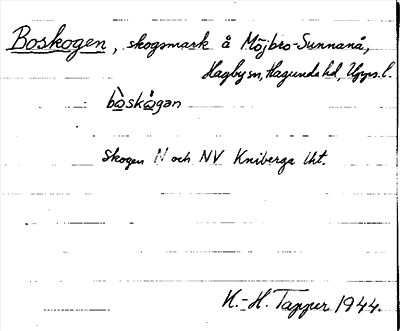 Boskogen, skogsmark å Möjbro-Sunnanå,
Hagby sn, Hagunda hd, Upps. l.
bòskågan
skogen N och NV Kniberga lht.
K.-H. Tapper 1944.